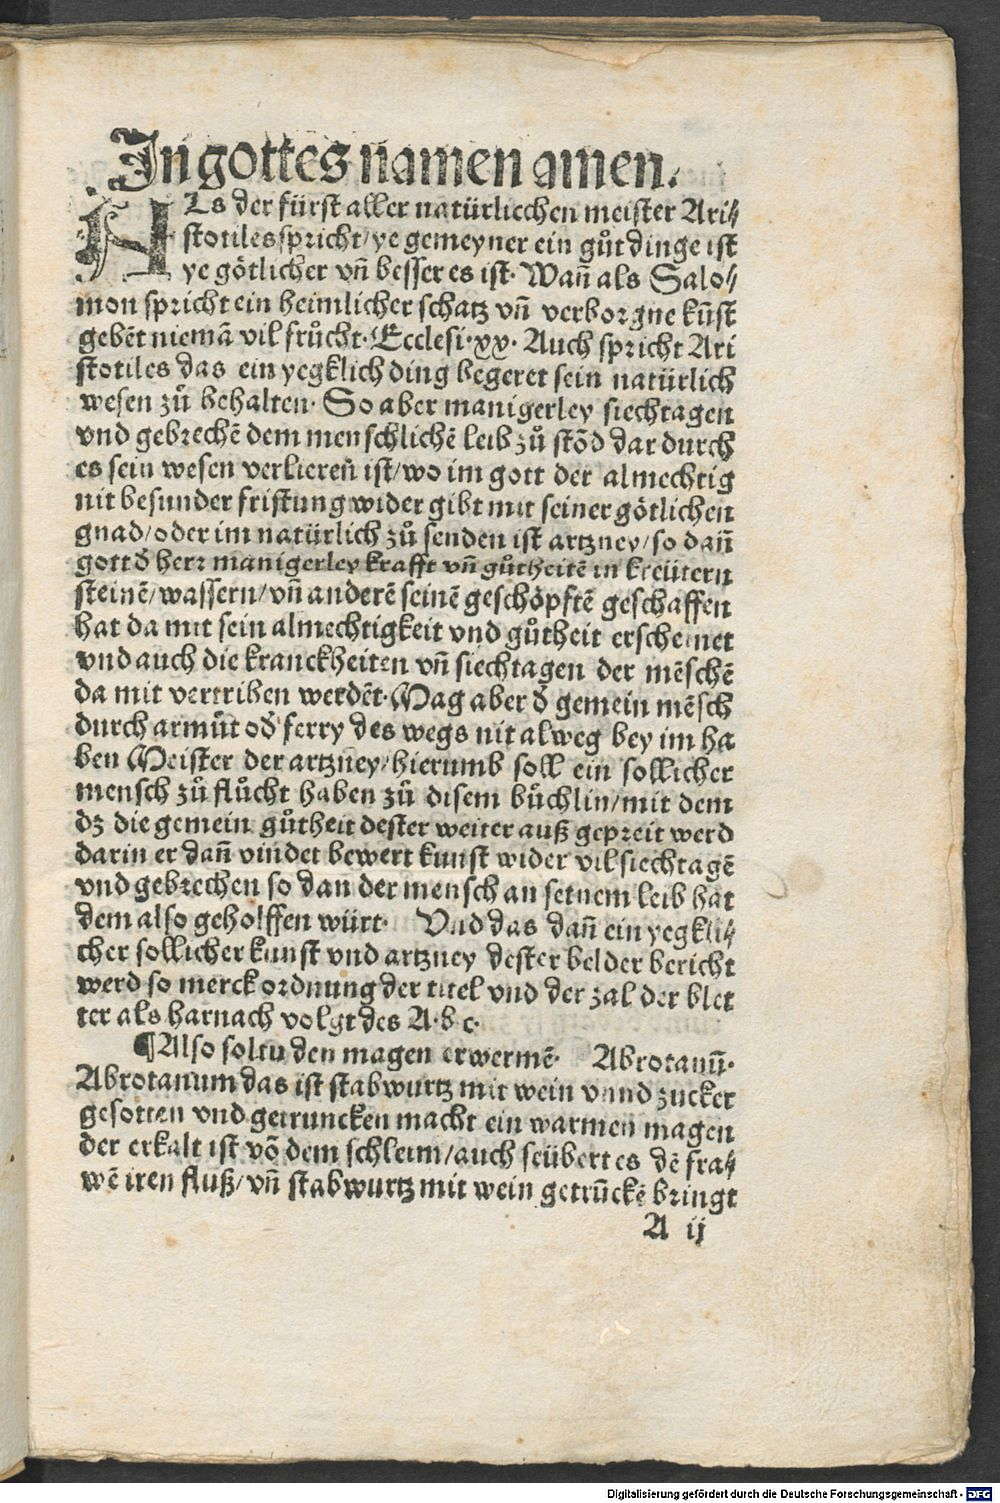 In gottes namen amen.
ALs der fürst aller natürlicchen meister Ari⸗
stotiles spricht/ye gemeyner ein gůt dinge ist
ye götlicher vñ besser es ist· Wañ als Salo⸗
mon spricht ein heimlicher schatz vñ verborgne kũst
gebẽt niemã vil frůcht·Ecclesi·xx· Auch spricht Ari
stotiles das ein yegklich ding begeret sein natürlich
wesen zů behalten· So aber manigerley siechtagen
vnd gebrechẽ dem menschlichẽ leib zů stõd dar durch
es sein wesen verlierẽn ist/wo im gott der almechtig
nit besunder fristung wider gibt mit seiner götlichen
gnad/oder im natürlich zů senden ist artzney/so dañ
gott d̕ herr manigerley krafft vñ gůtheitẽ in kreütern
steinẽ/wassern/vñ anderẽ seinẽ geschöpftẽ geschaffen
hat da mit sein almechtigkeit vnd gůtheit erscheinet
vnd auch die kranckheiten vñ siechtagen der mẽschẽ
da mit vertriben werdẽt·Mag aber d̕ gemein mẽsch
durch armůt od̕ ferry des wegs nit alweg bey im ha
ben Meister der artzney/hierumb soll ein sollicher
mensch zů flůcht haben zů disem bůchlin/mit dem
dz die gemein gůtheit dester weiter auß gepreit werd
darin er dañ vindet bewert kunst wider vil siechtagẽ
vnd gebrechen so dan der mensch an seinem leib hat
dem also geholffen würt· Vnd das dañ ein yegkli⸗
cher sollicher kunst vnd artzney dester belder bericht
werd so merck ordnung der titel vnd der zal der blet
ter als harnach volgt des A·b c·
¶Also soltu den magen erwermẽ· Abrotanũ·
Abrotanum das ist stabwurtz mit wein vnnd zucker
gesotten vnd getruncken macht ein warmen magen
der erkalt ist võ dem schleim/auch seübert es dẽ fra⸗
wẽ iren fluß/vñ stabwurtz mit wein getrũckẽ bringt
A ij
Digitalisierung gefördert durch die Deutsche Forschungsgemeinschaft - DFG